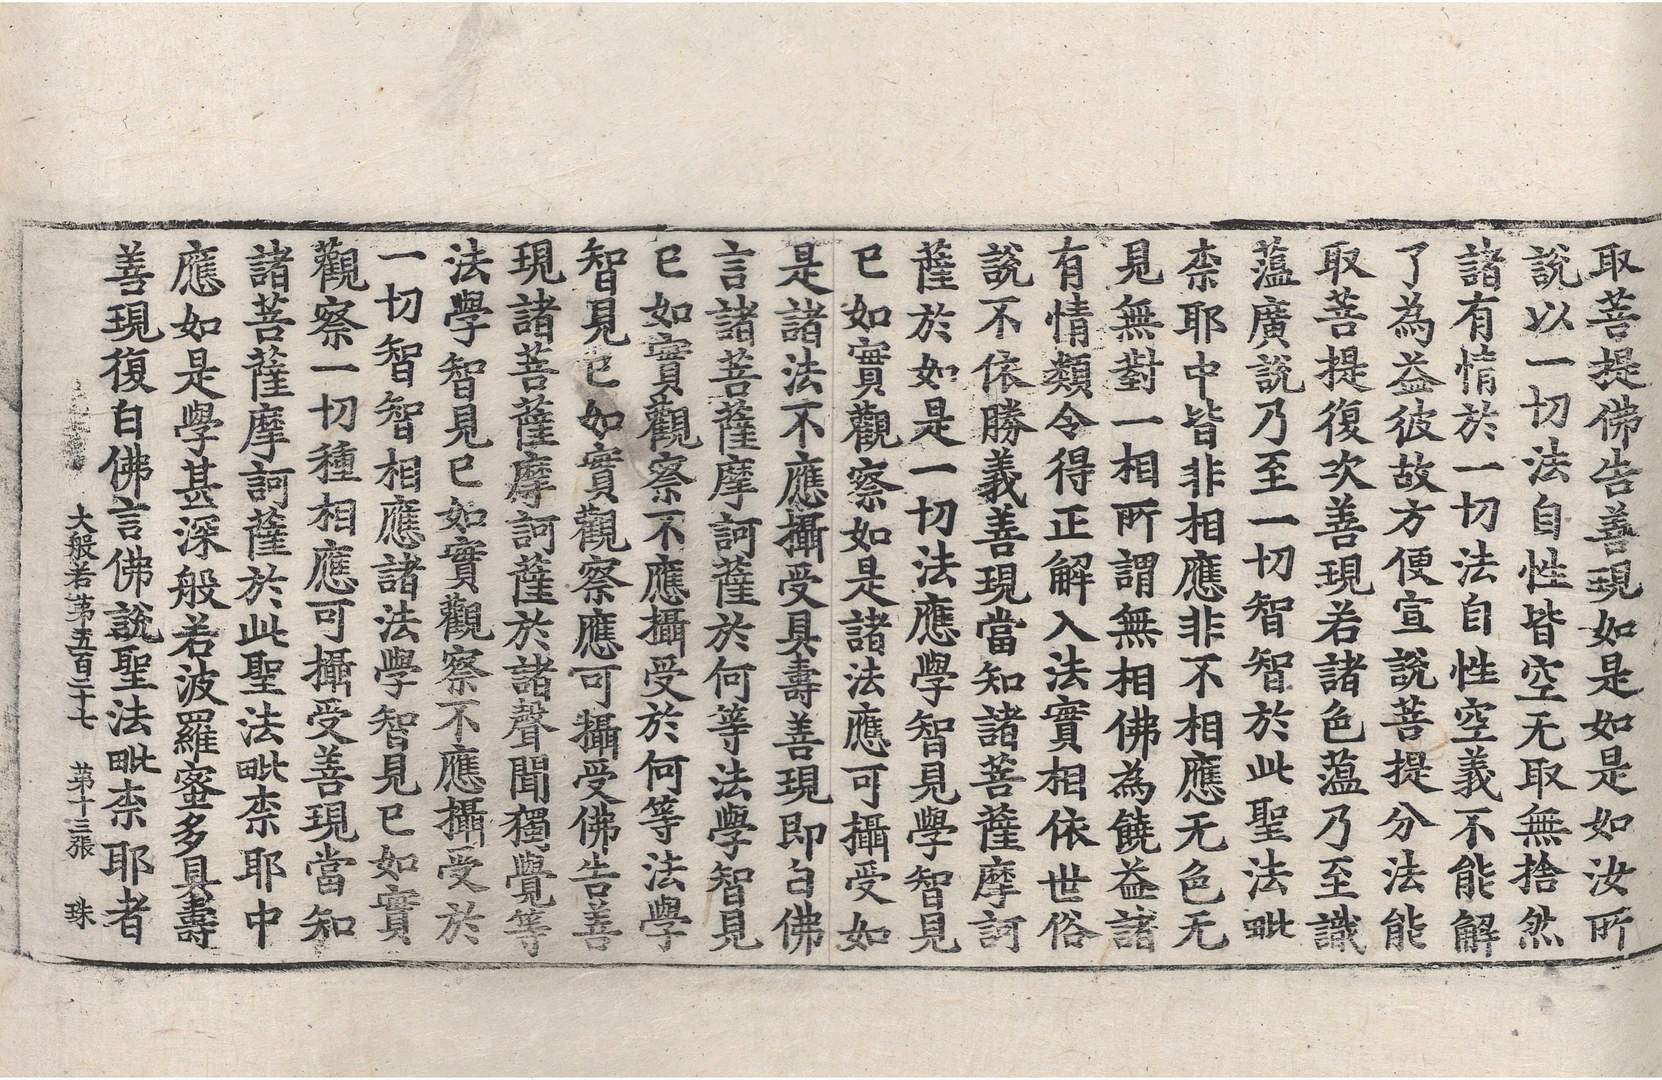 取菩提佛告善現如是如是如汝所
說以一切法自性皆空无取無捨然
諸有情於一切法自性空義不能解
了為益彼故方便宣說菩提分法能
取菩提復次善現若諸色薀乃至識
薀廣說乃至一切智智於此聖法毗
柰耶中皆非相應非不相應无色无
見無對一相所謂無相佛為饒益諸
有情類令得正解入法實相依世俗
說不依勝義善現當知諸菩薩摩訶
薩於如是一切法應學智見學智見
已如實觀察如是諸法應可攝受如
是諸法不應攝受具壽善現即白佛
言諸菩薩摩訶薩於何等法學智見
已如實觀察不應攝受於何等法學
智見已如實觀察應可攝受佛告善
現諸菩薩摩訶薩於諸聲聞獨覺等
法學智見已如實觀察不應攝受於
一切智智相應諸法學智見已如實
觀察一切種相應可攝受善現當知
諸菩薩摩訶薩於此聖法毗柰耶中
應如是學甚深般若波羅蜜多具壽
善現復白佛言佛說聖法毗柰耶者
大般若第五百二十七 第十三張 珠